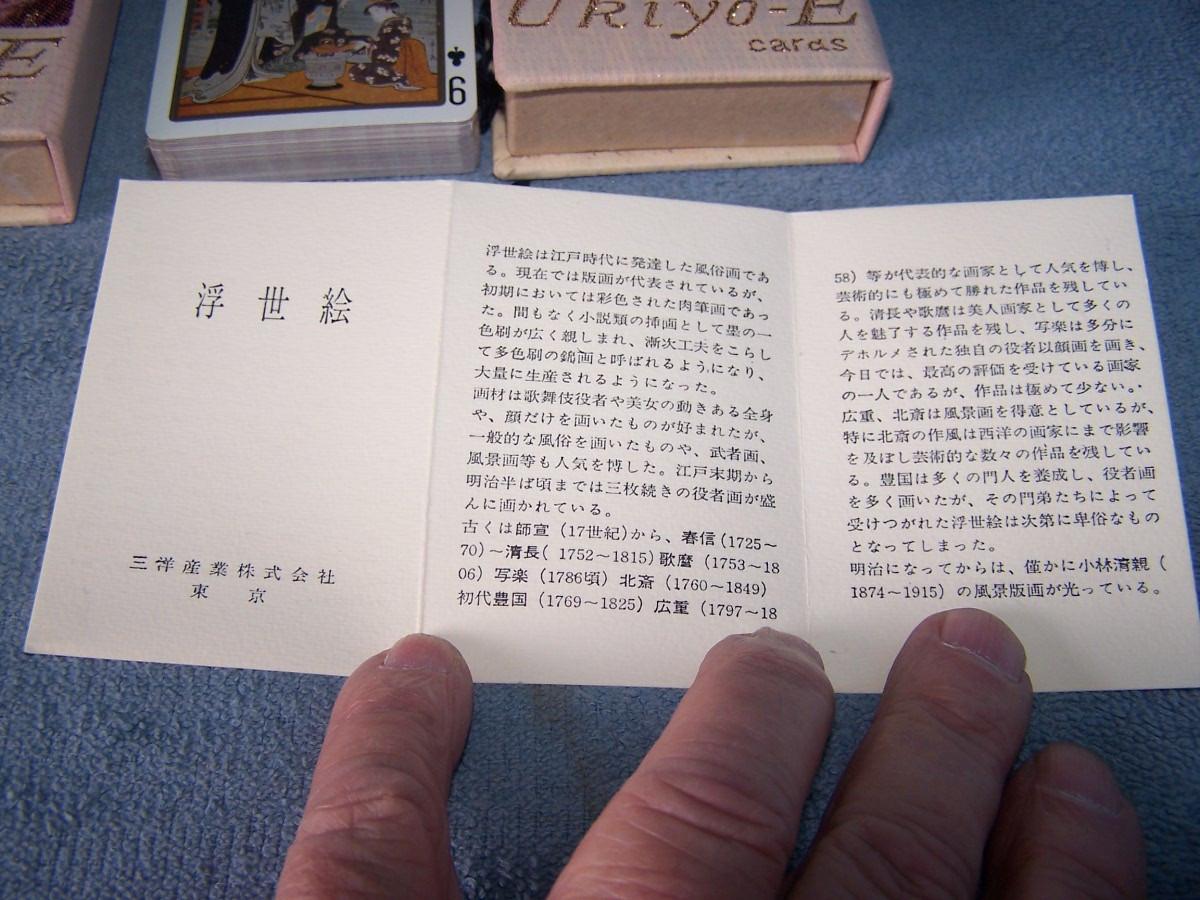 E
s
6
Ukiyo-E
cards
浮世絵
三洋産業株式会社
東京
浮世絵は江戸時代に発達した風俗画であ
る。現在では版画が代表されているが、
初期においては彩色された肉筆画であっ
た。間もなく小説類の挿画として墨の一
色刷が広く親しまれ、漸次工夫をこらし
て多色刷の錦画と呼ばれるようになり、
大量に生産されるようになった。
画材は歌舞伎役者や美女の動きある全身
や、顔だけを画いたものが好まれたが、
一般的な風俗を画いたものや、武者画、
風景画等も人気を博した。江戸末期から
明治半ば頃までは三枚続きの役者画が盛
んに画かれている。
古くは師宣（17世紀)から、春信(1725～
70)～清長( 1752～1815)歌麿（1753～18
06）写楽（1786頃）北斎（1760～1849）
初代豊国（1769～1825）広重（1797～18
58）等が代表的な画家として人気を博し、
芸術的にも極めて勝れた作品を残してい
る。清長や歌麿は美人画家として多くの
人を魅了する作品を残し、写楽は多分に
デホルメされた独自の役者似顔画を画き、
今日では、最高の評価を受けている画家
の一人であるが、作品は極めて少ない。
広重、北斎は風景画を得意としているが、
特に北斎の作風は西洋の画家にまで影響
を及ぼし芸術的な数々の作品を残してい
る。豊国は多くの門人を養成し、役者画
を多く画いたが、その門弟たちによって
受けつがれた浮世絵は次第に卑俗なもの
となってしまった。
明治になってからは、僅かに小林清親（
1874～1915）の風景版画が光っている。